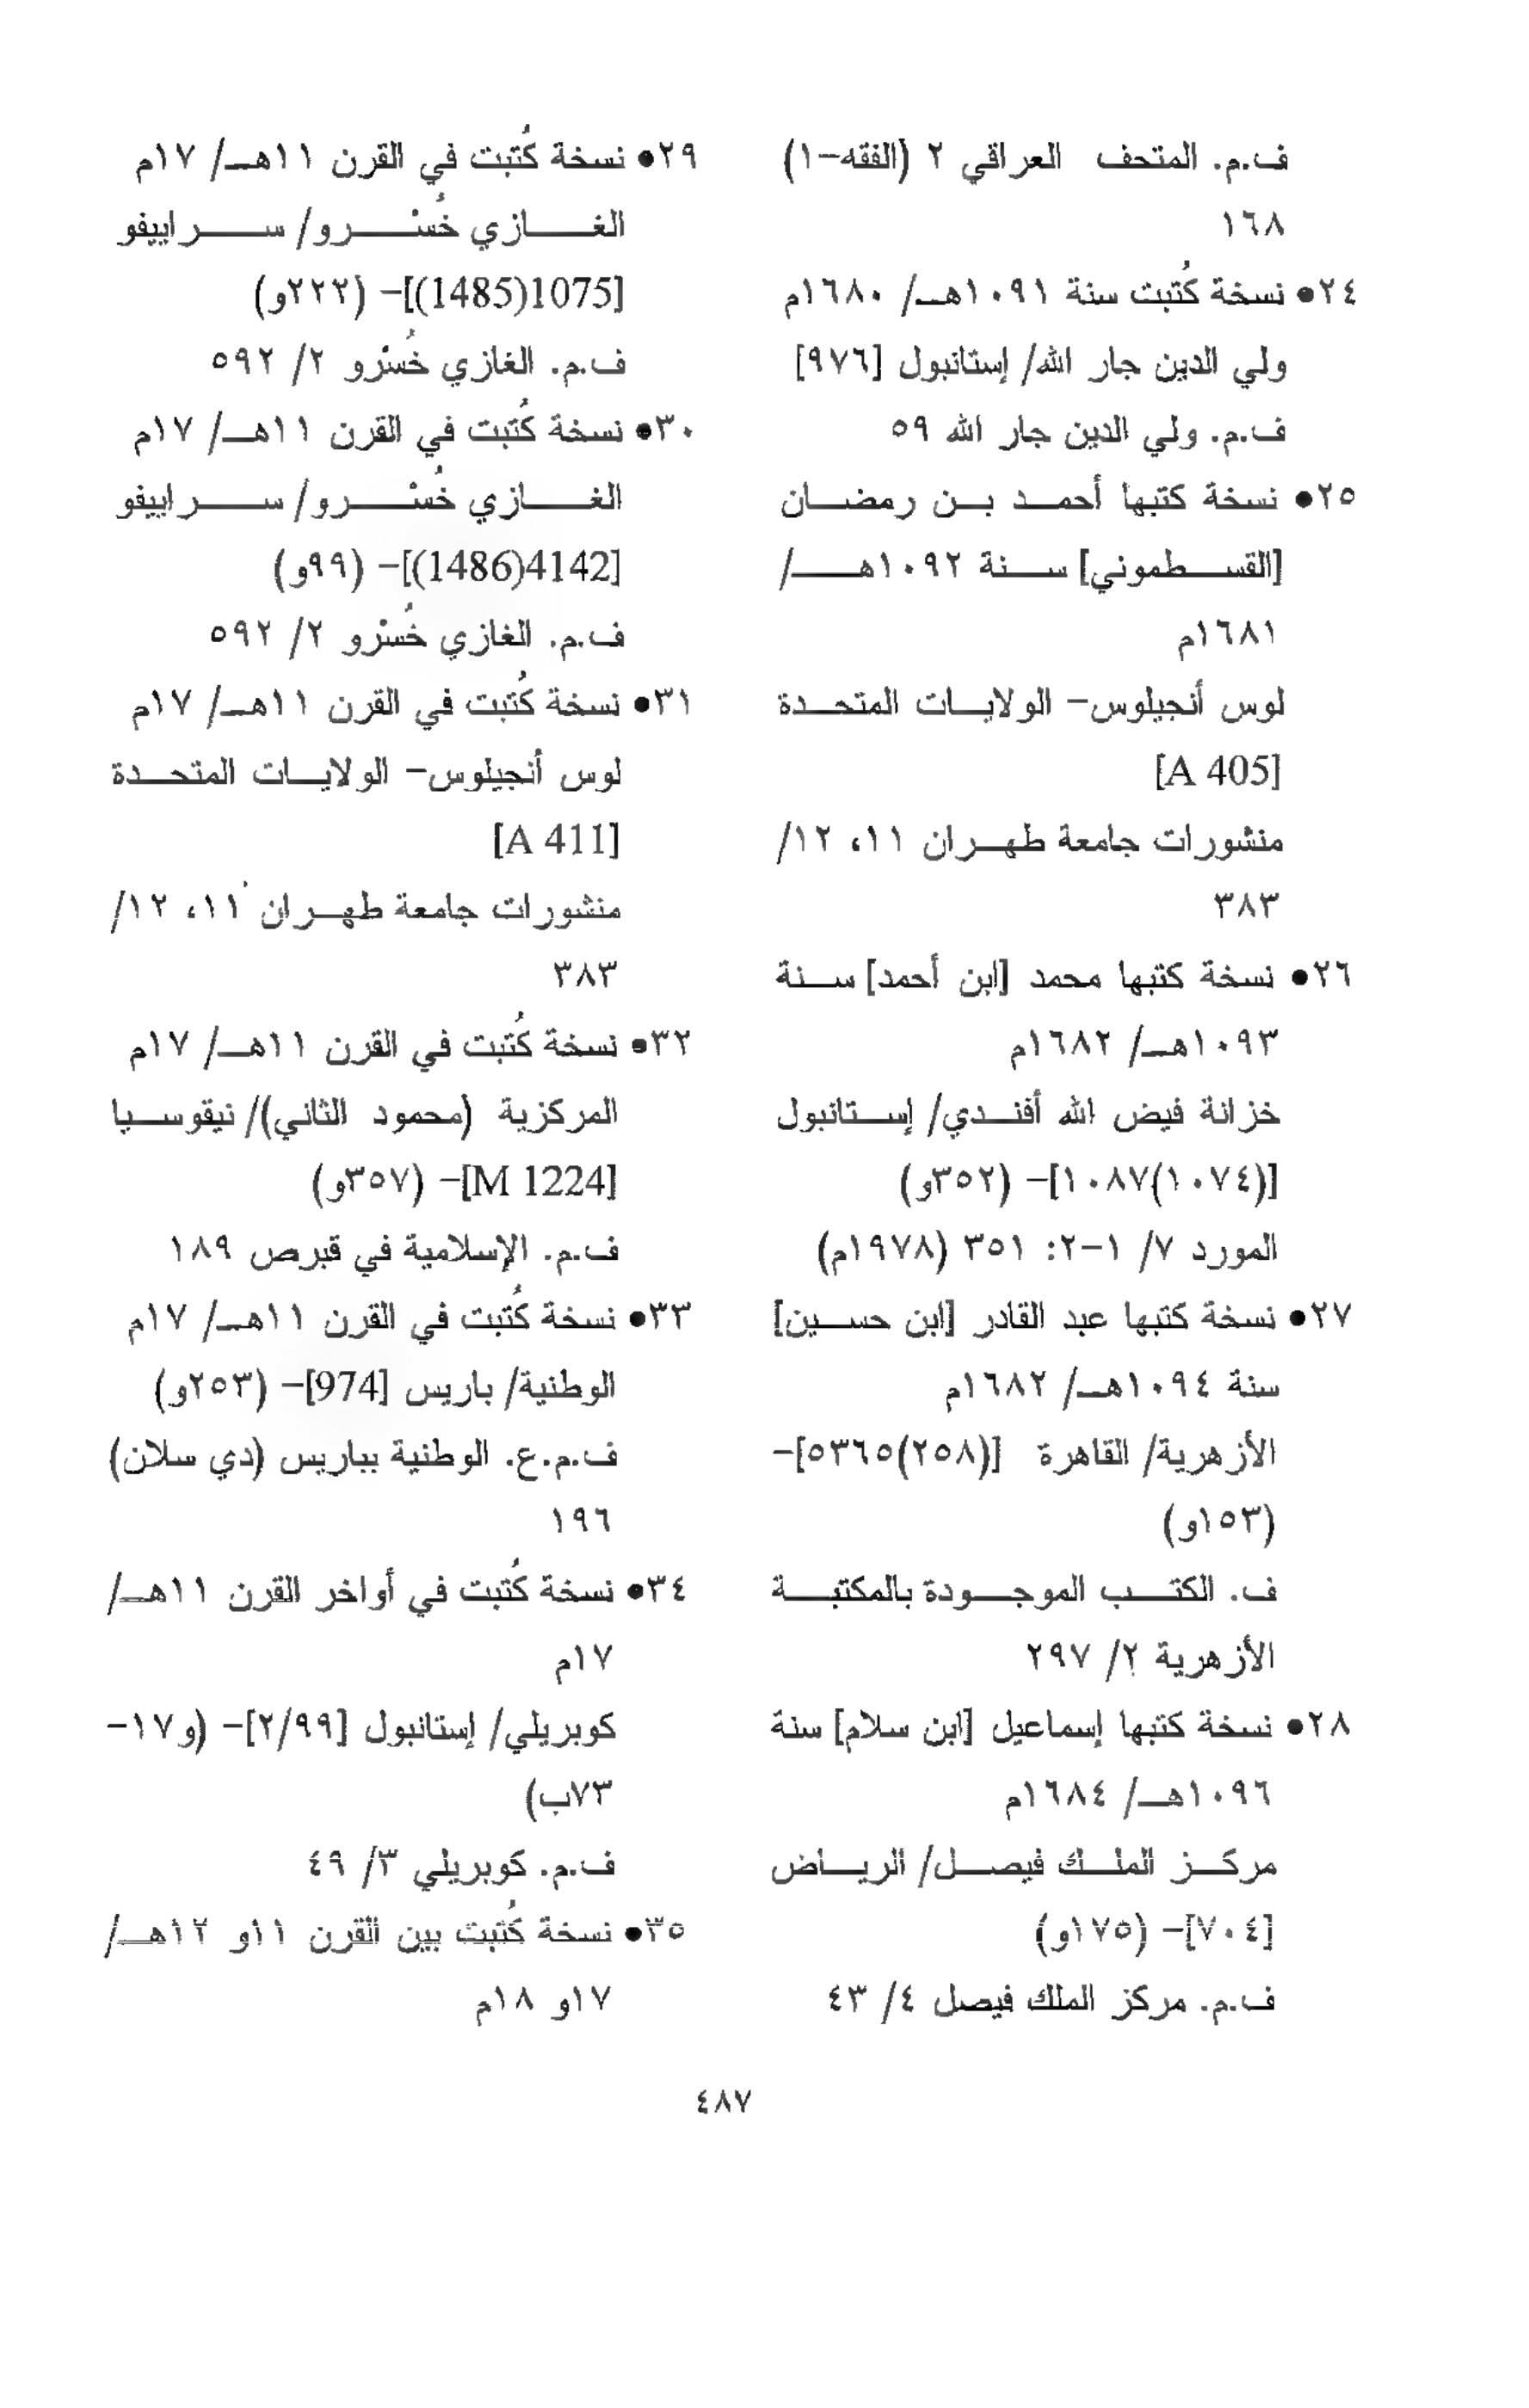 ف.م. المتحف العراقي ٢ (الفقه-١)
١٦٨
٢٤• نسخة كُتبت سنة ١٠٩١هــ/ ١٦٨٠م
ولي الدين جار الله/ إستانبول [٩٧٦]
ف.م. ولي الدين جار الله ٥٩
٢٥• نسخة كتبها أحمد بن رمضان
[القسطموني] سنة ١٠٩٢هــ/
١٦٨١م
لوس أنجيلوس- الولايات المتحدة
[A 405]
منشورات جامعة طهران ١١، ١٢/
٣٨٣
٢٦• نسخة كتبها محمد [ابن أحمد] سنة
١٠٩٣هــ/ ١٦٨٢م
خزانة فيض الله أفندي/ إستانبول
[(١٠٧٤)١٠٨٧]- (٣٥٢و)
المورد ٧/ ١-٢: ٣٥١ (١٩٧٨م)
٢٧• نسخة كتبها عبد القادر [ابن حسين]
سنة ١٠٩٤هــ/ ١٦٨٢م
الأزهرية/ القاهرة [(٢٥٨)٥٣٦٥]-
(١٥٣و)
ف. الكتب الموجودة بالمكتبة
الأزهرية ٢/ ٢٩٧
٢٨• نسخة كتبها إسماعيل [ابن سلام] سنة
١٠٩٦هــ/ ١٦٨٤م
مركز الملك فيصل/ الرياض
[٧٠٤]- (١٧٥و)
ف.م. مركز الملك فيصل ٤/ ٤٣
٢٩• نسخة كُتبت في القرن ١١هــ/ ١٧م
الغازي خُسْرو/ سراييفو
[1075(1485)]- (٢٢٢و)
ف.م. الغازي خُسْرو ٢/ ٥٩٢
٣٠• نسخة كُتبت في القرن ١١هــ/ ١٧م
الغازي خُسْرو/ سراييفو
[4142(1486)]- (٩٩و)
ف.م. الغازي خُسْرو ٢/ ٥٩٢
٣١• نسخة كُتبت في القرن ١١هــ/ ١٧م
لوس أنجيلوس- الولايات المتحدة
[A 411]
منشورات جامعة طهران ١١، ١٢/
٣٨٣
٣٢• نسخة كُتبت في القرن ١١هــ/ ١٧م
المركزية (محمود الثاني)/ نيقوسيا
[M 1224]- (٣٥٧و)
ف.م. الإسلامية في قبرص ١٨٩
٣٣• نسخة كُتبت في القرن ١١هــ/ ١٧م
الوطنية/ باريس [974]- (٢٥٣و)
ف.م.ع. الوطنية بباريس (دي سلان)
١٩٦
٣٤• نسخة كُتبت في أواخر القرن ١١هــ/
١٧م
كوبريلي/ إستانبول [٢/٩٩]- (و١٧-
٧٣ب)
ف.م. كوبريلي ٣/ ٤٩
٣٥• نسخة كُتبت بين القرن ١١و ١٢هــ/
١٧و ١٨م
٤٨٧